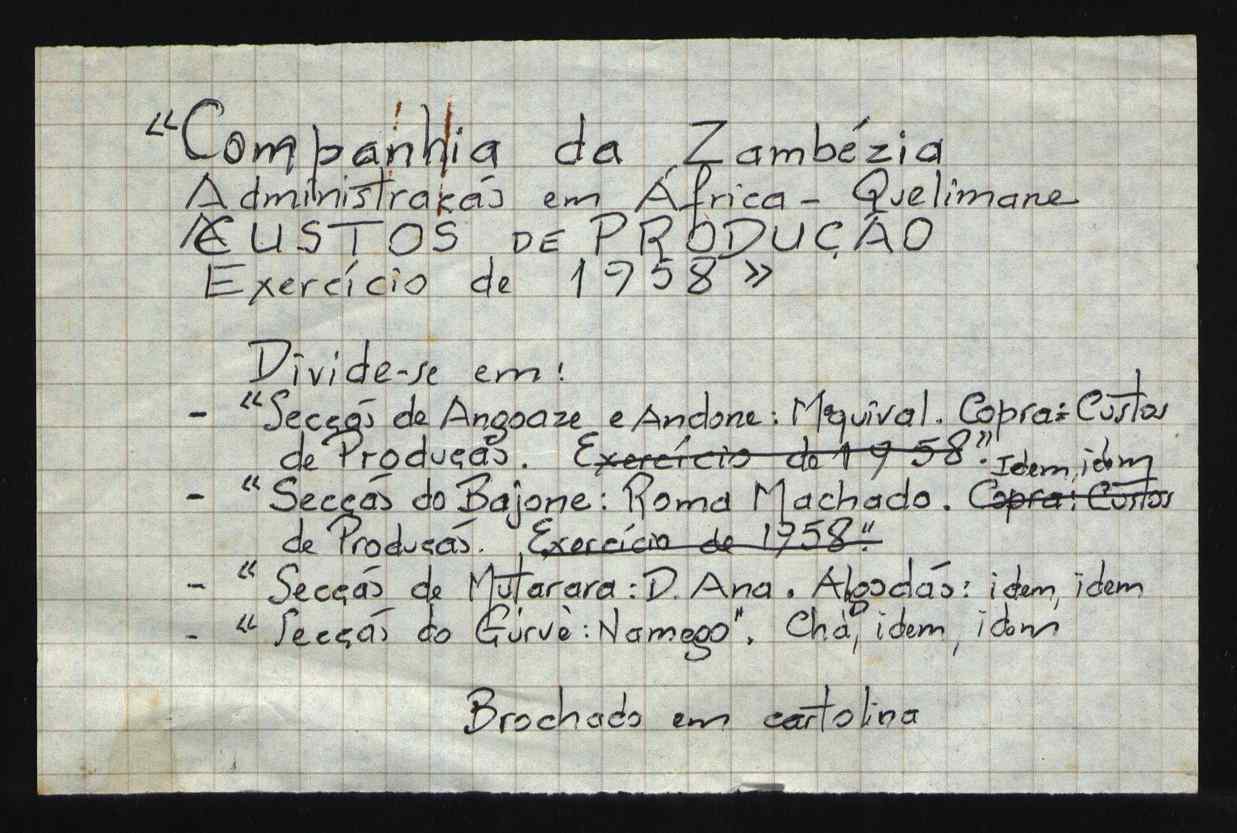 “Companhia da Zambézia
Administração em África - Quelimane
CUSTOS DE PRODUÇÃO
Exercício de 1958”
Divide-se em:
- “Secção de Angoaze e Andone: Mquival. Copra: Custos
de Produção. Exercício de 1958”.
Idem, idem
- “Secção do Bajone: Roma Machado. Copra: Custos
de Produção. Exercício de 1958”.
- “Secção de Mutarara: D. Ana. Algodão: idem, idem
- “Secção do Gúruè: Namego”. Chá, idem, idem
Brochado em cartolina